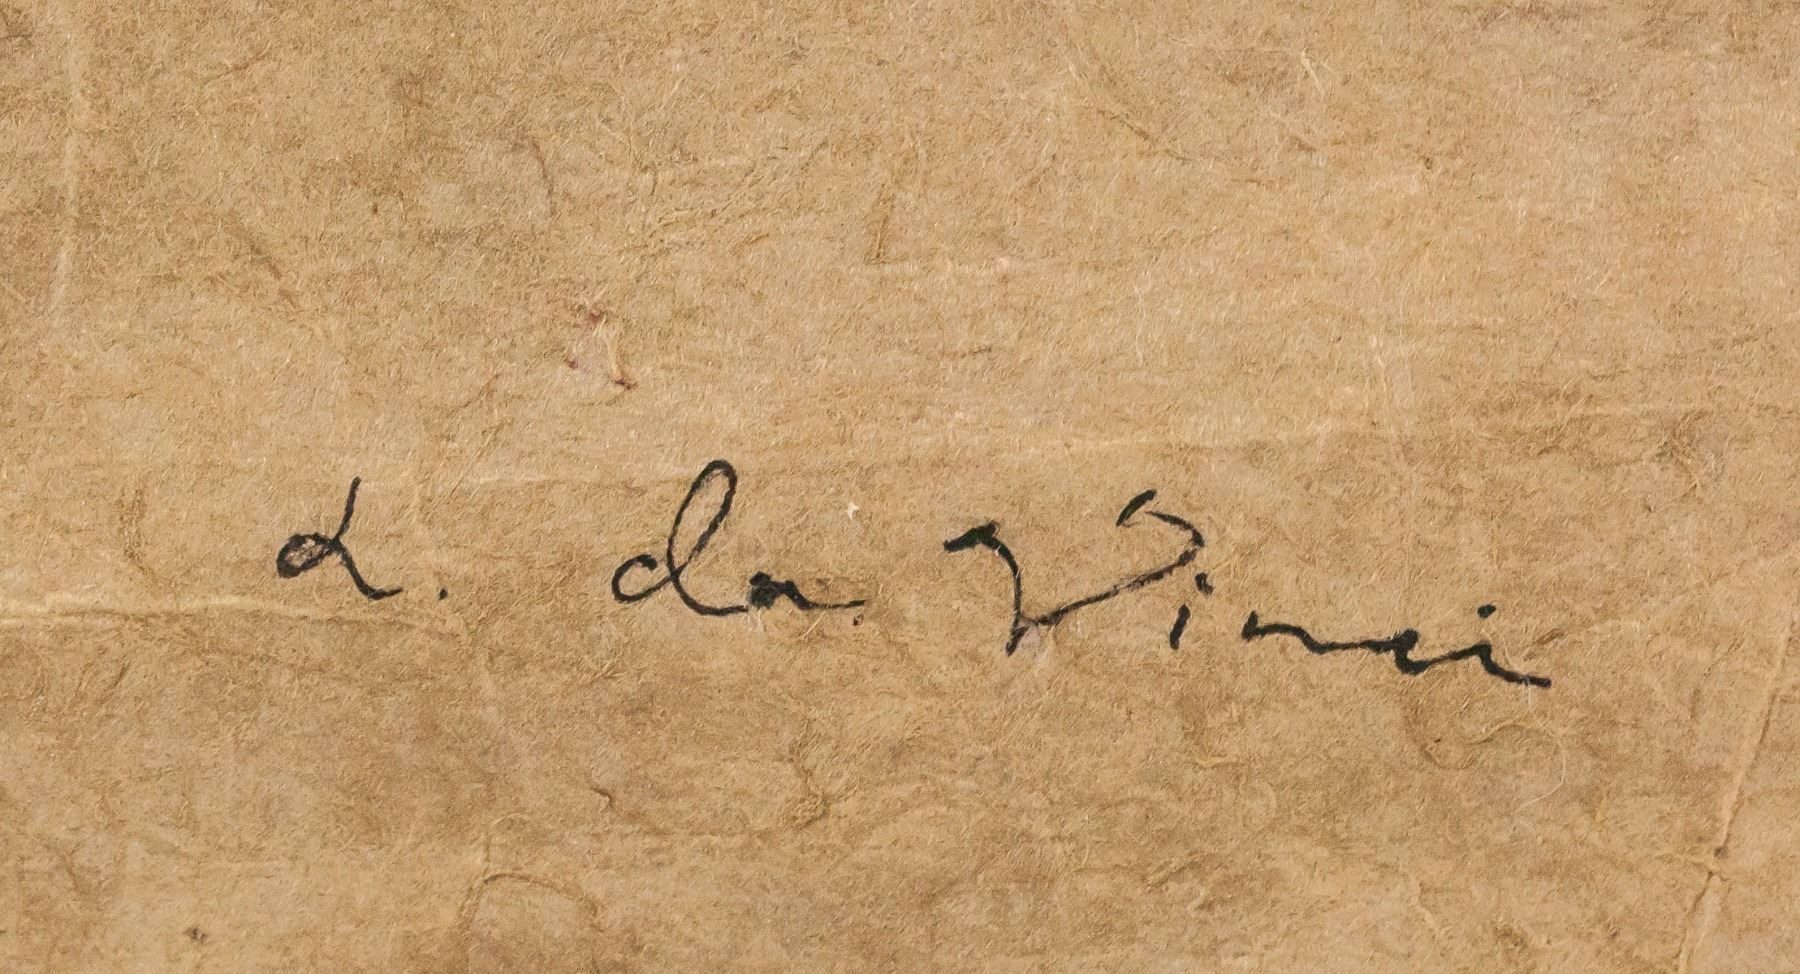 L. da Vinci